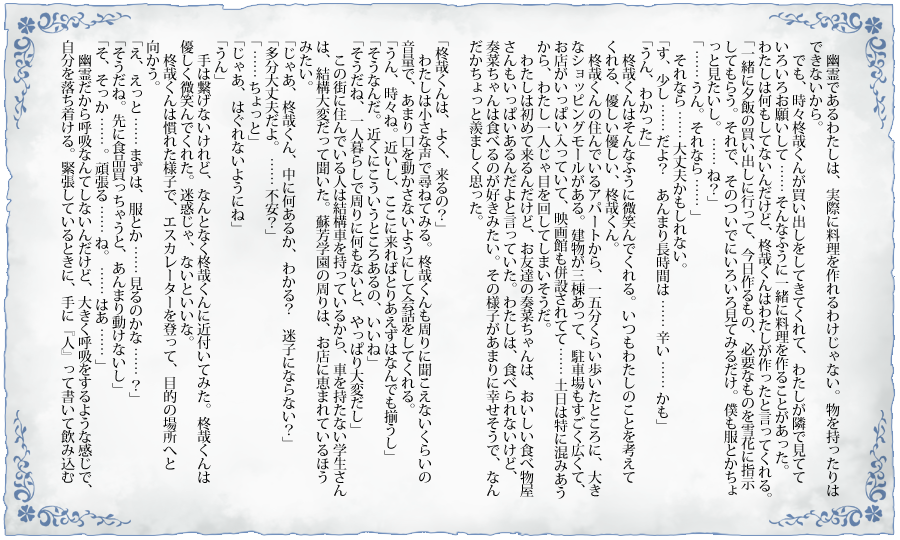 幽霊であるわたしは、実際に料理を作れるわけじゃない。物を持ったりは
できないから。
　でも、時々柊哉くんが買い出しをしてきてくれて、わたしが隣で見てて
いろいろお願いして……そんなふうに一緒に料理を作ることがあった。
わたしは何もしてないんだけど、柊哉くんはわたしが作ったと言ってくれる。
「一緒に夕飯の買い出しに行って、今日作るもの、必要なものを雪花に指示
してもらう。それで、そのついでにいろいろ見てみるだけ。僕も服とかちょ
っと見たいし。……ね？」
「……うん。それなら……」
　それなら……大丈夫かもしれない。
「す、少し……だよ？　あんまり長時間は……辛い……かも」
「うん、わかった」
　柊哉くんはそんなふうに微笑んでくれる。いつもわたしのことを考えて
くれる、優しい優しい、柊哉くん。
　柊哉くんの住んでいるアパートから、一五分くらい歩いたところに、大き
なショッピングモールがある。建物が三棟あって、駐車場もすごく広くて、
お店がいっぱい入っていて、映画館も併設されてて……土日は特に混みあう
から、わたし一人じゃ目を回してしまいそうだ。
　わたしは初めて来るんだけど、お友達の奏菜ちゃんは、おいしい食べ物屋
さんもいっぱいあるんだよと言っていた。わたしは、食べられないけど、
奏菜ちゃんは食べるのが好きみたい。その様子があまりに幸せそうで、なん
だかちょっと羨ましく思った。
「柊哉くんは、よく、来るの？」
　わたしは小さな声で尋ねてみる。柊哉くんも周りに聞こえないくらいの
音量で、あまり口を動かさないようにして会話をしてくれる。
「うん、時々ね。近いし、ここに来ればとりあえずはなんでも揃うし」
「そうなんだ。近くにこういうところあるの、いいね」
「そうだね、一人暮らしで周りに何もないと、やっぱり大変だし」
　この街に住んでいる人は結構車を持っているから、車を持たない学生さん
は、結構大変だって聞いた。蘇芳学園の周りは、お店に恵まれているほう
みたい。
「じゃあ、柊哉くん、中に何あるか、わかる？　迷子にならない？」
「多分大丈夫だよ。……不安？」
「……ちょっと」
「じゃあ、はぐれないようにね」
「うん」
　手は繋げないけれど、なんとなく柊哉くんに近付いてみた。柊哉くんは
優しく微笑んでくれた。迷惑じゃ、ないといいな。
　柊哉くんは慣れた様子で、エスカレーターを登って、目的の場所へと
向かう。
「え、えっと……まずは、服とか……見るのかな……？」
「そうだね。先に食品買っちゃうと、あんまり動けないし」
「そ、そっか……。頑張る……ね。……はあ……」
　幽霊だから呼吸なんてしないんだけど、大きく呼吸をするような感じで、
自分を落ち着ける。緊張しているときに、手に『人』って書いて飲み込む